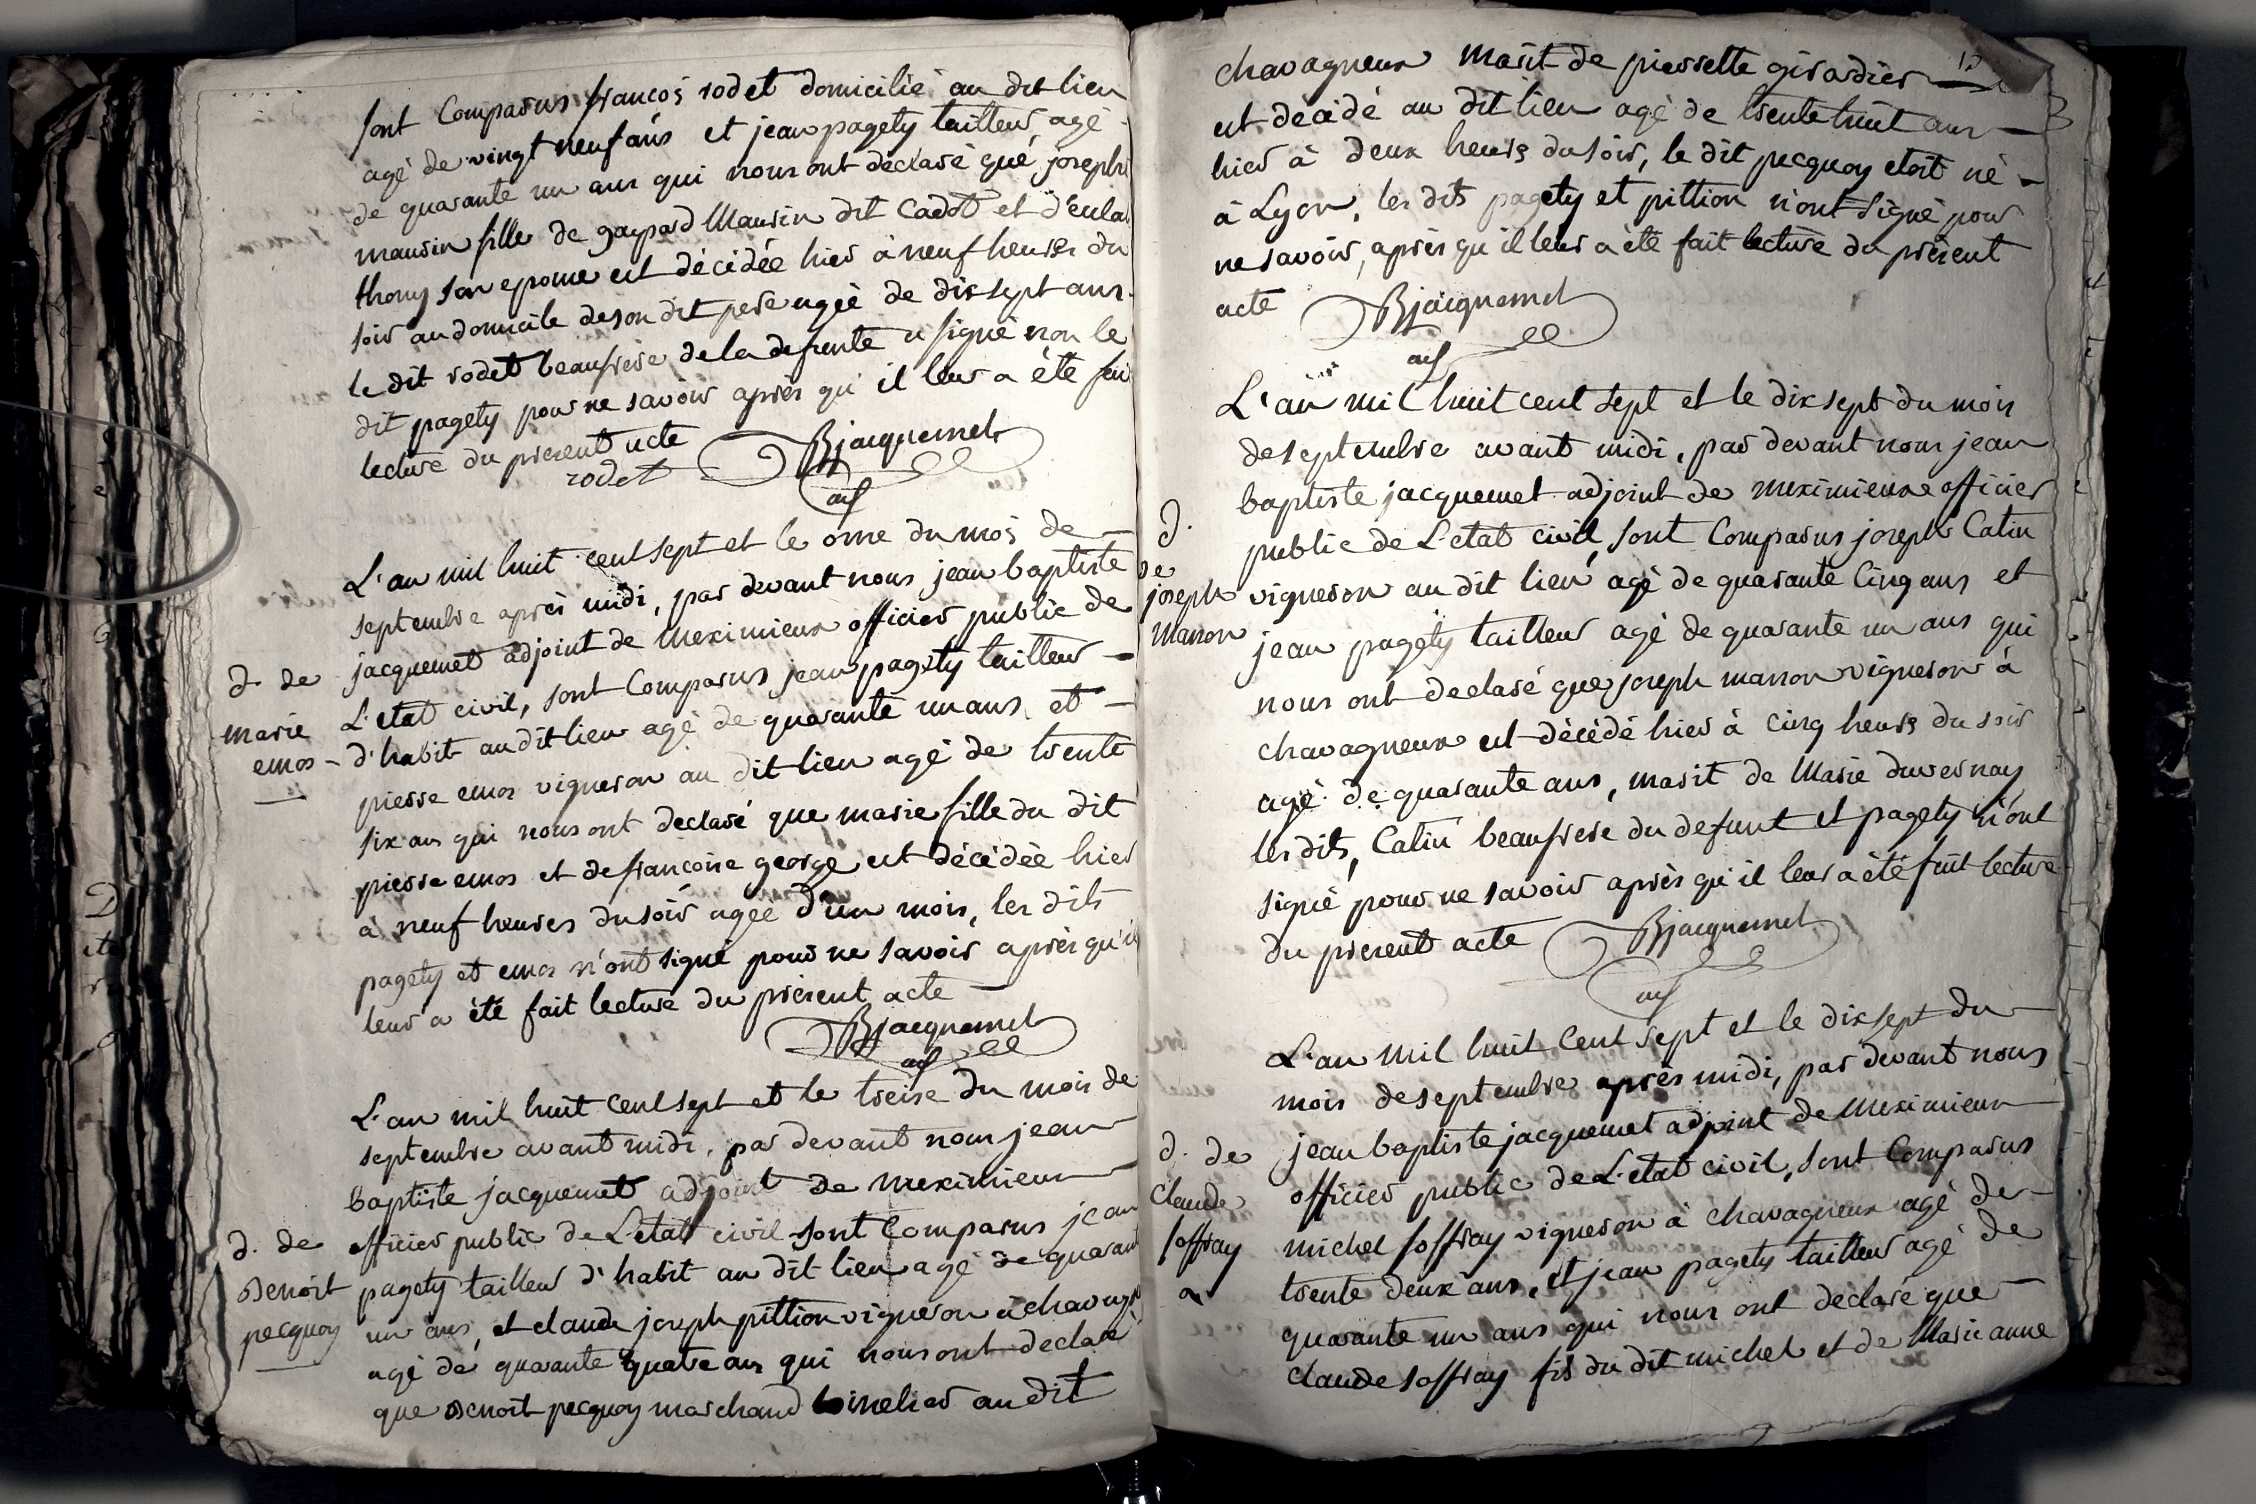 sont Comparus françois rodet domicilié au dit lieu
agé de vingt neuf ans et jean pagety tailleur, agé
de quarante un ans qui nous ont déclaré que joseph
maurin fille de gaspard Maurin dit Cadot et d'eula
thony son epouse est décédée hier à neuf heures du
soir au domicile de son dit pere agéé de dix sept ans
le dit rodet beaufrere de la defunte a signé non le
dit pagety pour ne savoir après qu'il leur a été fai
lecture du présent acte
rodet Bjacquemet
adj
L'an mil huit cent sept et le onze du mois de
septembre après midi, par devant nous jean baptiste
jacquemet adjoint de Meximieux officier public de
L'etat civil, sont Comparus jean pagety tailleur
d'habit au dit lieu agé de quarante un ans, et
pierre emor vigneron au dit lieu agé de trente
six ans qui nous ont declaré que marie fille du dit
pierre emor et de françoise george est décédée hier
à neuf heures du soir agée d'un mois, les dits
pagety et emor n'ont signé pour ne savoir après qu'il
leur a été fait lecture du présent acte
Bjacquemet
adj
d. de
marie
emor
L'an mil huit cent sept et le treize du mois de
septembre avant midi, par devant nous jean
baptiste jacquemet adjoint de meximieux
officier public de L'etat civil sont Comparus jean
pagety tailleur d'habit au dit lieu agé de quarant
un ans, et claude joseph pittion vigneron à chavagn
agé de quarante quatre ans qui nous ont declaré
que Benoit pecquoy marchand au dit
d. de
Benoit
pecquoy
chavagneux marit de pierrette girardier
est décédé au dit lieu agé de trente huit ans
hier à deux heures du soir, le dit pecquoy etoit né
à Lyon, les dits pagety et pittion n'ont signé pour
ne savoir, après qu'il leur a été fait lecture du présent
acte Bjacquemet
adj
L'an mil huit cent sept et le dix sept du mois
de septembre avant midi, par devant nous jean
baptiste jacquemet adjoint de meximieux officier
public de L'etat civil, sont Comparus joseph Catin
vigneron au dit lieu agé de quarante Cinq ans et
jean pagety tailleur agé de quarante un ans qui
nous ont declaré que joseph marron vigneron à
chavagneux est décédé hier à cinq heures du soir
agé de quarante ans, marit de Marie duvernay
les dits, Catin beaufrere du defunt et pagety n'ont
signé pour ne savoir après qu'il leur a été fait lecture
du present acte Bjacquemet
adj
d.
de
joseph
marron
L'an mil huit Cent sept et le dix sept du
mois de septembre après midi, par devant nous
jean baptiste jacquemet adjoint de Meximieux
officier public de L'etat civil, sont Comparus
michel soffray vigneron à chavagneux agé de
trente deux ans, et jean pagety tailleur agé de
quarante un ans qui nous ont declaré que
claude soffray fils du dit michel et de Marie anne
d. de
Claude
soffray